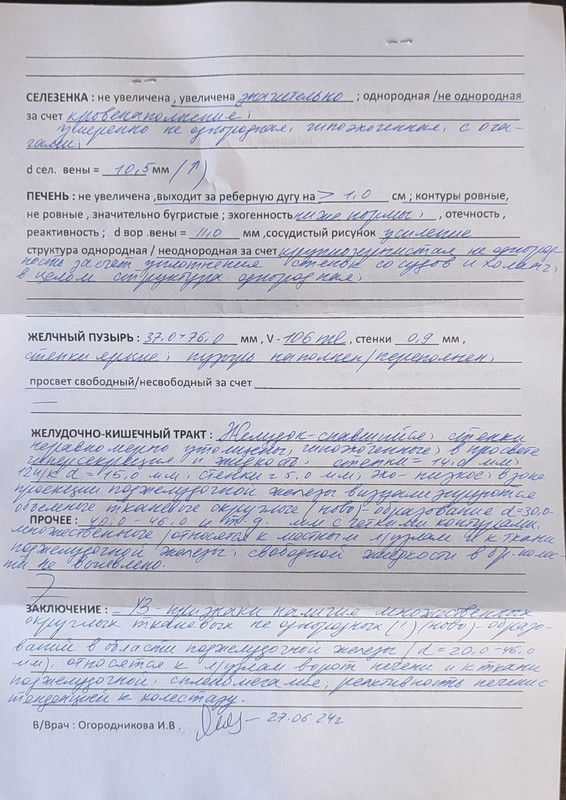 СЕЛЕЗЕНКА : не увеличена , увеличена значительно ; однородная /не однородная
за счет кровенаполнения;
умеренно не однородная, гипоэхогенная, с оча-
гами;
d сел. вены = 10,5 мм /↑)
ПЕЧЕНЬ : не увеличена ,выходит за реберную дугу на > 1,0 см ; контуры ровные,
не ровные , значительно бугристые ; эхогенность ниже нормы; , отечность ,
реактивность ; d вор .вены = 11,0 мм ,сосудистый рисунок усиление
структура однородная / неоднородная за счет крупнозернистая не однород-
ность за счет уплотнения стенок сосудов и холанг;
в целом структура однородная;
ЖЕЛЧНЫЙ ПУЗЫРЬ : 37,0-76,0 мм , V - 106 мл , стенки 0,9 мм ,
стенки яркие; пузырь наполнен/переполнен;
просвет свободный/несвободный за счет
—
ЖЕЛУДОЧНО-КИШЕЧНЫЙ ТРАКТ : Желудок-спавшийся; стенки
неравномерно утолщены, гипоэхогенные; в просвете
гиперсекреция и жидкость, стенки= мм;
12п/к d = 15,0 мм; стенки = 5,0 мм; эхо- низкое; в зоне
проекции поджелудочной железы визуализируются
объемные тканевые округлые /ново/-образования d=30,0-
ПРОЧЕЕ : 40,0 - 46,0 и т.д. мм с четкими контурами,
множественные /относятся к местным л/узлам и к ткани
поджелудочной железы; свободной жидкости в бр. полос-
ти не выявлено.
ЗАКЛЮЧЕНИЕ : УЗ - признаки наличие множественных
округлых тканевых не однородных (!) (ново)-образо-
ваний в области поджелудочной железы / d = 20,0-46,0
мм); относятся к л/узлам ворот печени и к ткани
поджелудочной; спленомегалия; реактивность печени с
тенденцией к холестазу.
В/Врач : Огородникова И.В . 27.06.24г